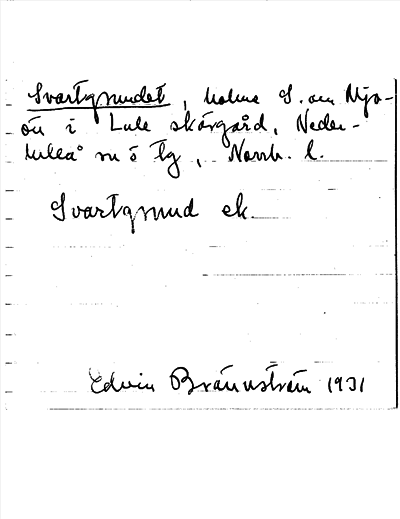 Svartgrundet, holme S. om Mjo-
ön i Lule skärgård, Neder-
luleå sn o tg, Norrb. l.
Svartgrund ek.
Edvin Brännström 1931